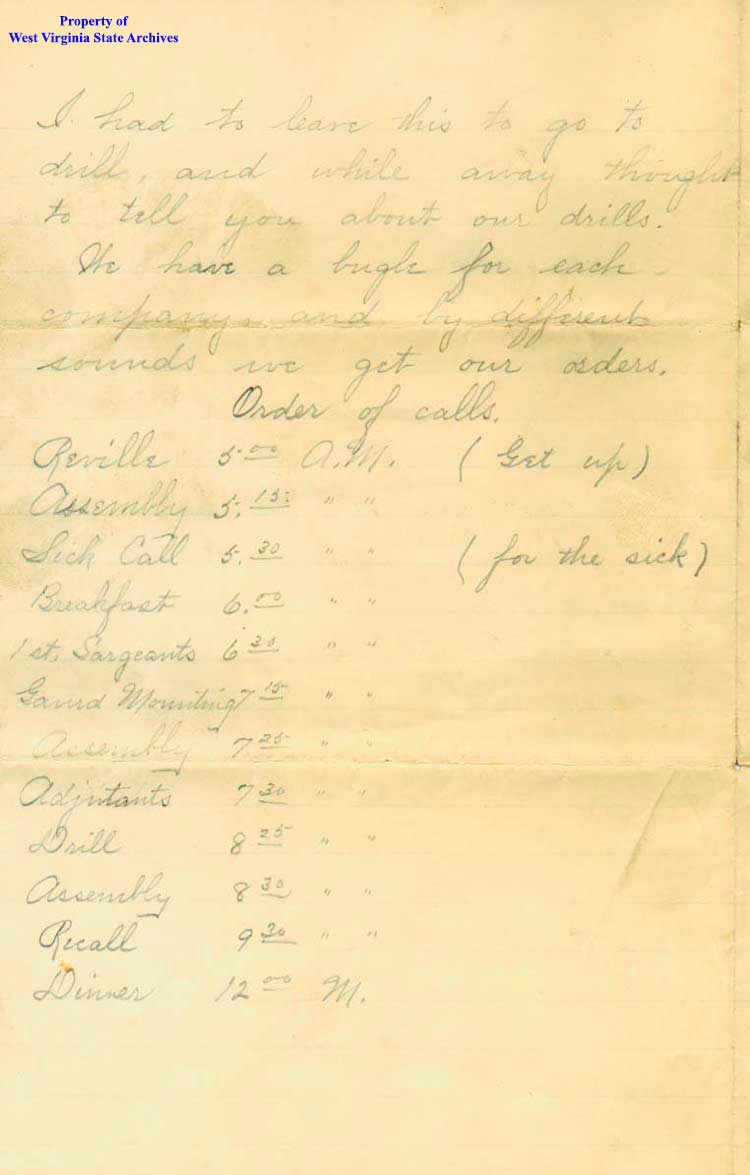 Property of
West Virginia State Archives
I had to leave this to go to
drill, and while away thought
to tell you about our drills.
We have a bugle for each
company, and by different
sounds we get our orders.
Order of calls.
Reville 5.00 A.M. (Get up)
Assembly 5.15 " "
Sick Call 5.30 " " (for the sick)
Breakfast 6.00 " "
1st. Sargeants 6 30 " "
Gaurd Mounting 7 15 " "
Assembly 7 25 " "
Adjutants 7 30 " "
Drill 8 25 " "
Assembly 8 30 " "
Recall 9 30 " "
Dinner 12 00 M.